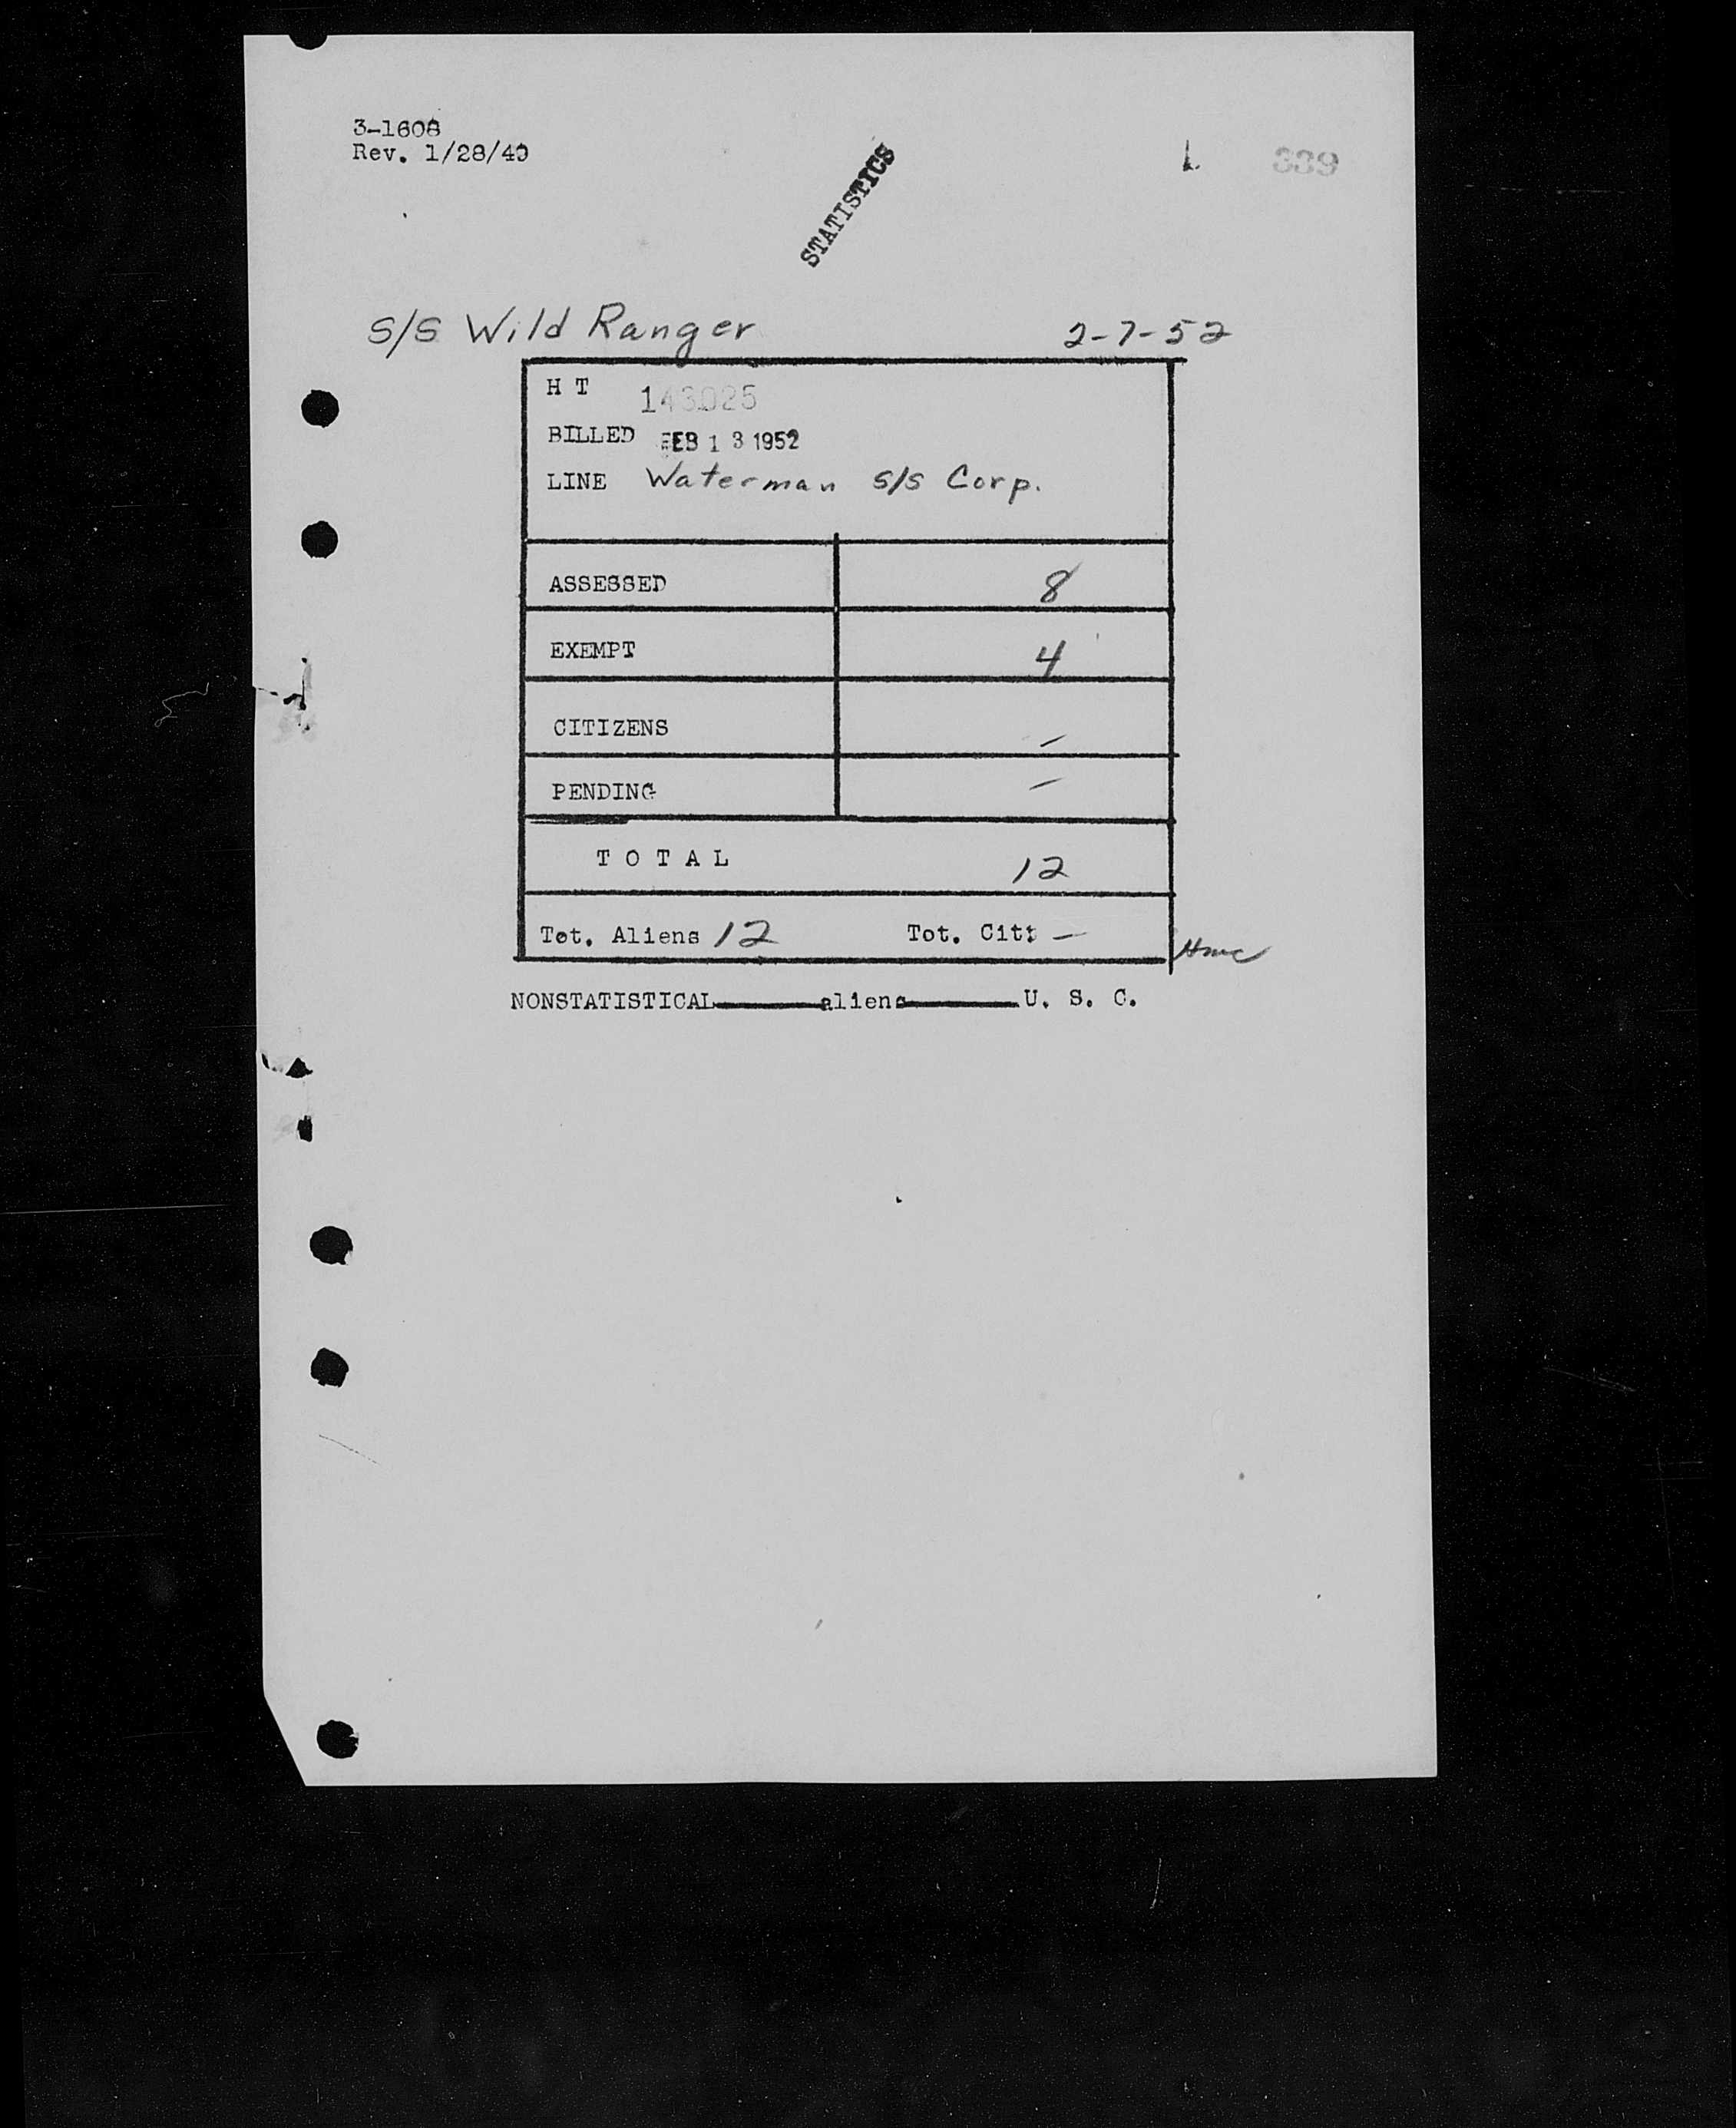 3-1608
Rev. 1/28/49
STATISTICS
339
S/S Wild Ranger 2-7-52
H T 143025
BILLED FEB 13 1952
LINE Waterman S/S Corp.
ASSESSED 8
EXEMPT 4
CITIZENS –
PENDING –
T O T A L 12
Tot. Aliens 12 Tot. Citz –
NONSTATISTICAL______aliens______U. S. C.